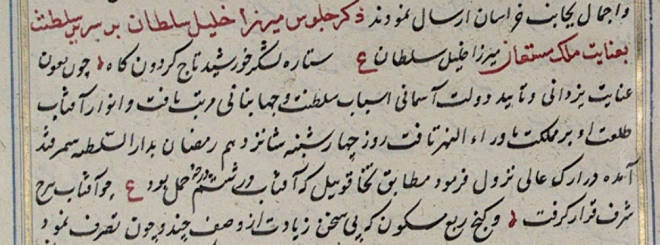 و اجمال بجانب خراسان ارسال نمودند ذکر جلوس میرزا خلیل سلطان بر سریر سلطنت
بعنایت ملک مستعان میرزا خلیل سلطان ع ستاره لشکر خورشید تاج گردون کاه چون بعون
عنایت یزدانی و تأیید دولت آسمانی اسباب سلطنت و جهانبانی مرتب یافت و انوار آفتاب
طلعت او بر مملکت ماوراء النهر تافت روز چهارشنبه شانزدهم رمضان بدار السلطنه سمرقند
آمده در ارک عالی نزول فرمود مطابق تخاقوییل که آفتاب در ششم درجه حمل بود ع چو آفتاب ببرج
شرف قرار گرفت و گنج ربع سکون که بی سخن زیادت از وصف چند و چون تصرف نمود